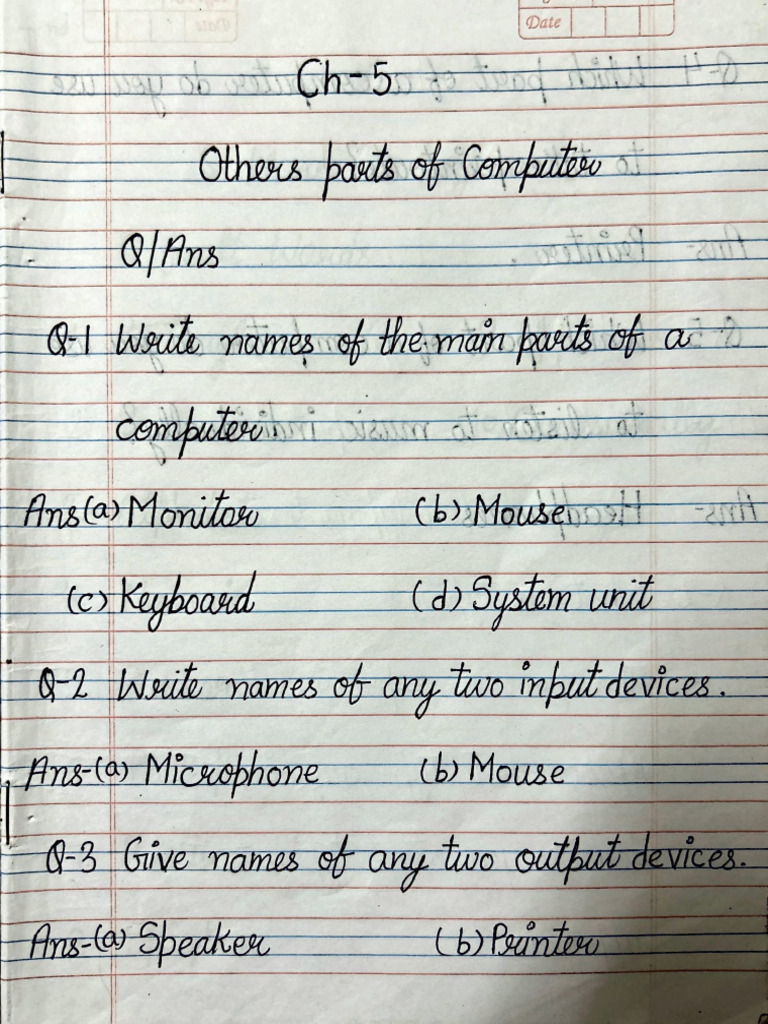 Date
Ch-5
Others parts of Computer
Q/Ans
Q-1 Write names of the main parts of a
computer
Ans(a) Monitor (b) Mouse
(c) Keyboard (d) System unit
Q-2 Write names of any two input devices.
Ans-(a) Microphone (b) Mouse
Q-3 Give names of any two output devices.
Ans-(a) Speaker (b) Printer